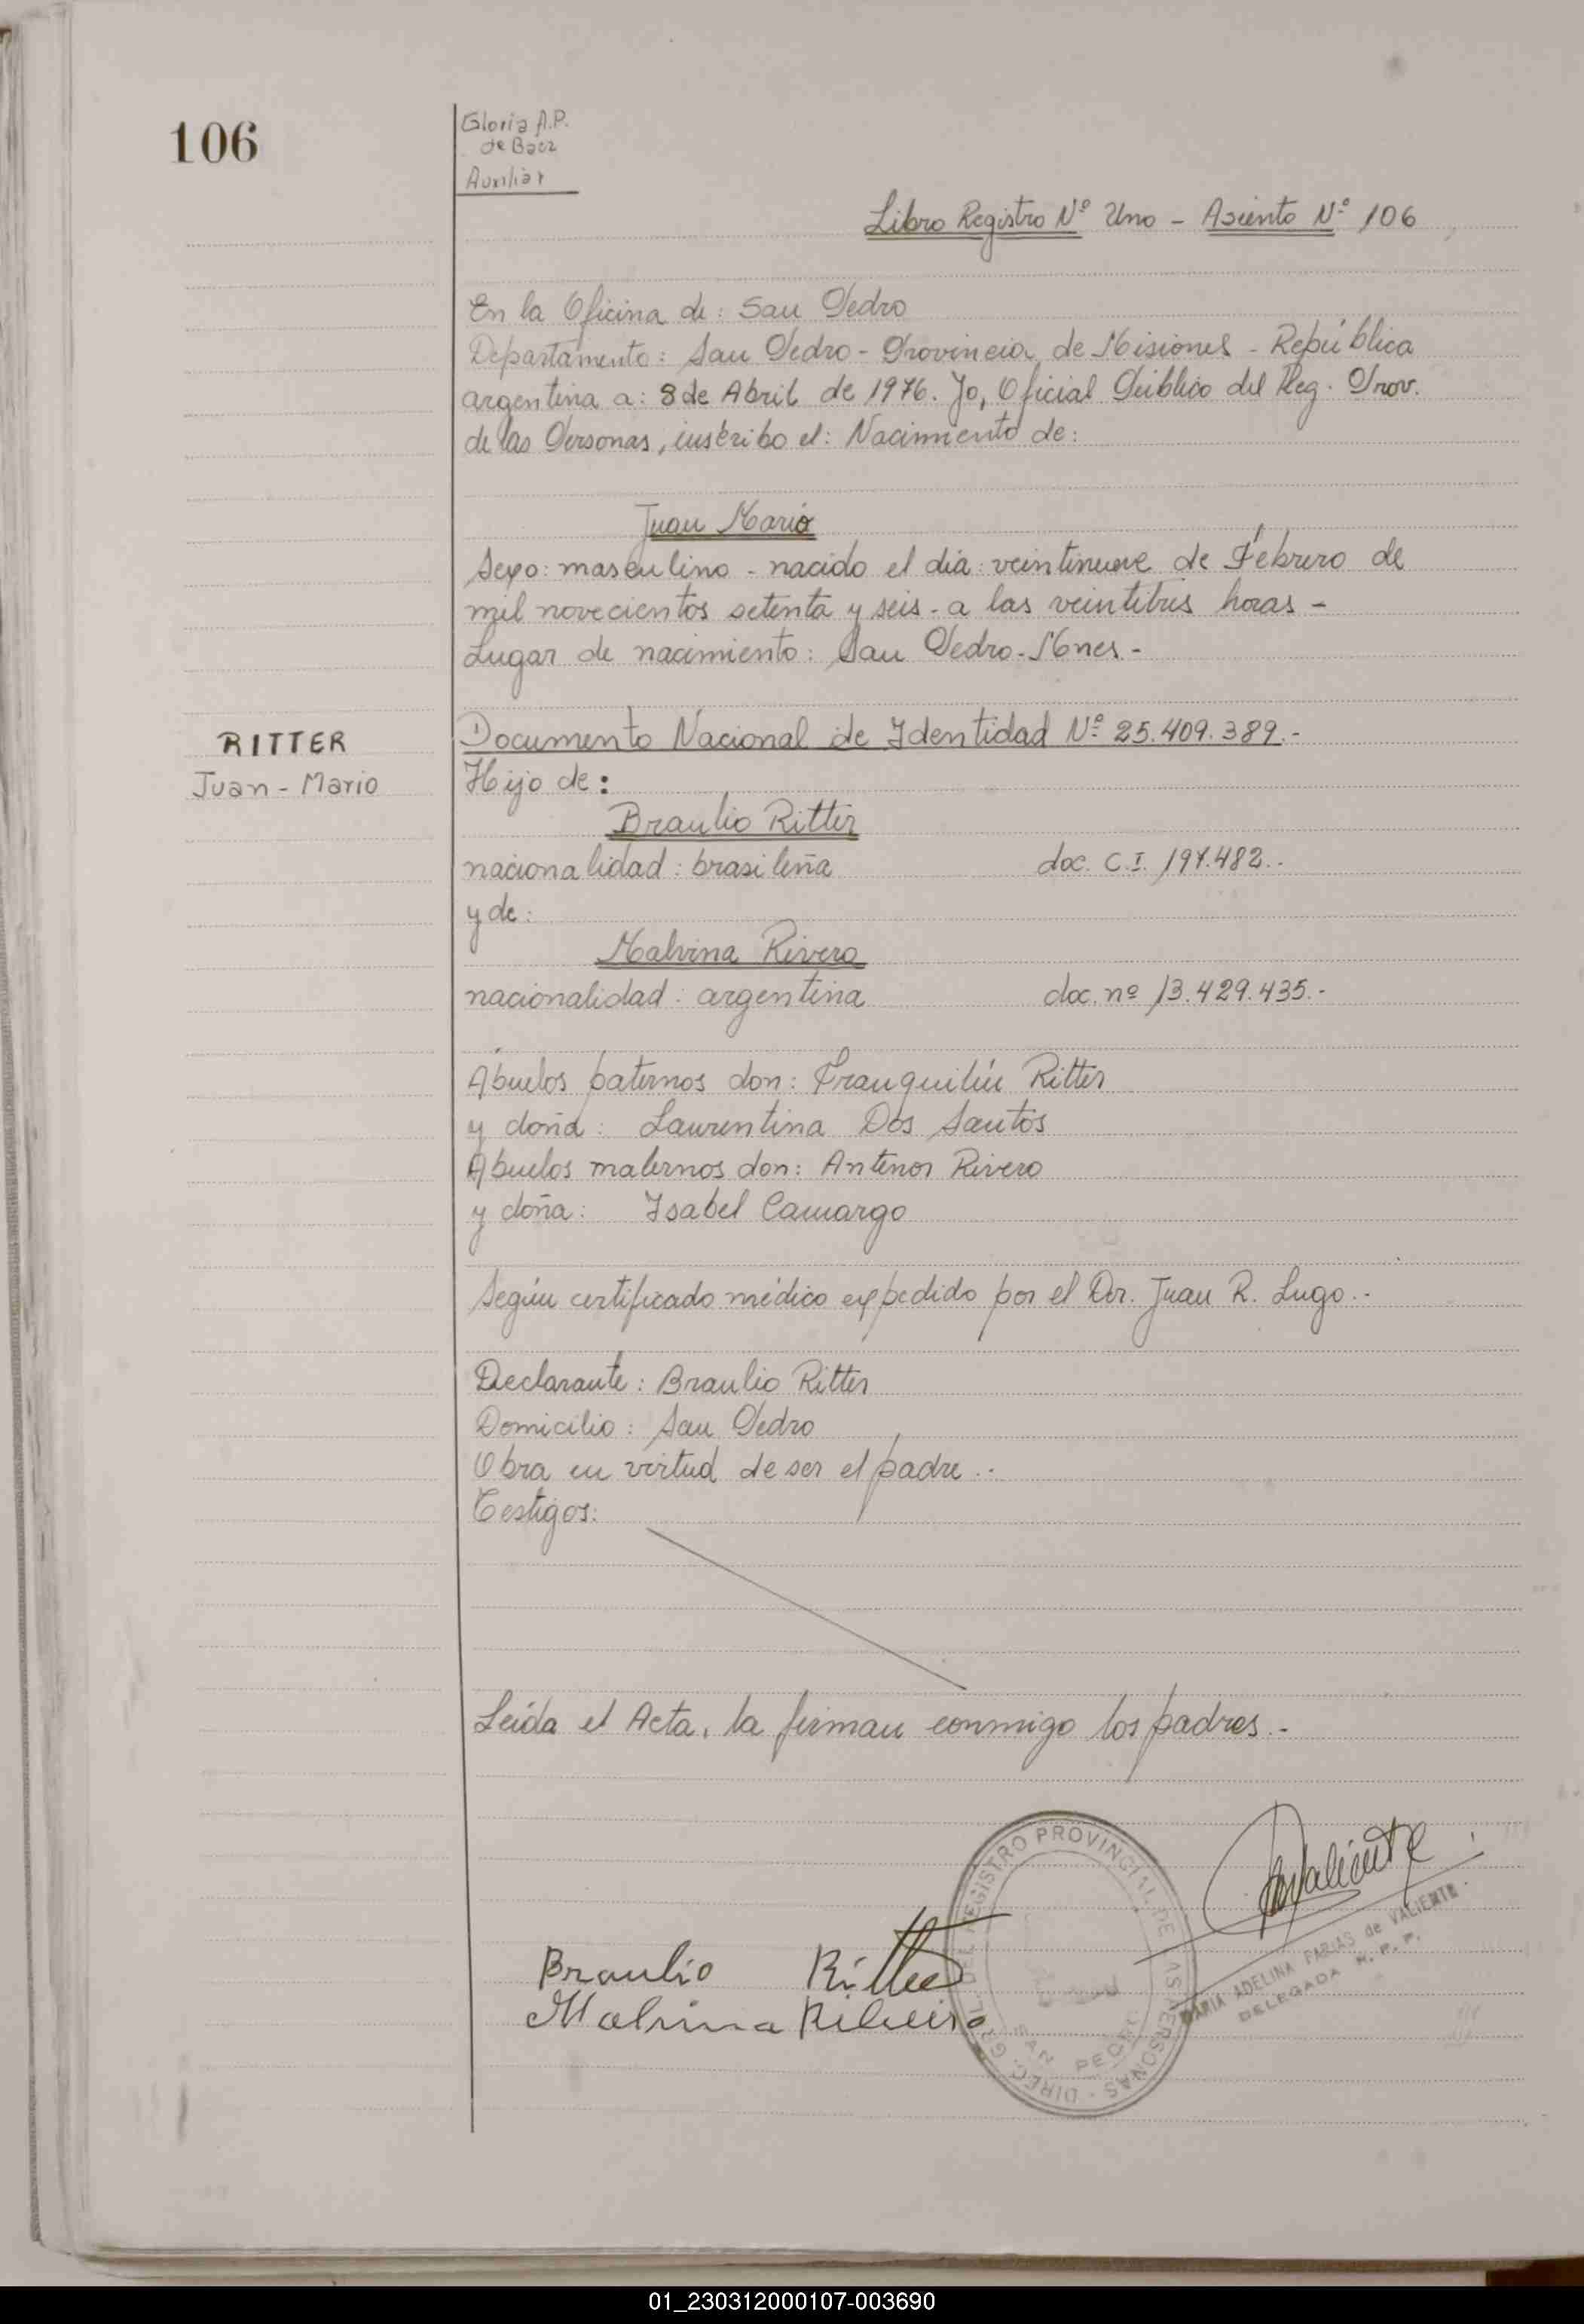 106
Gloria A.P.
de Baez
Auxiliar
Libro Registro Nº Uno - Asiento Nº 106
En la Oficina de: San Pedro
Departamento: San Pedro - Provincia de Misiones - República
argentina a: 8 de Abril de 1976. Yo, Oficial Público del Reg. Prov.
de las Personas, inscribo el: Nacimiento de:
Juan Mario
Sexo: masculino - nacido el día: veintinueve de Febrero de
mil novecientos setenta y seis - a las veintitris horas -
Lugar de nacimiento: San Pedro - Mnes. -
RITTER
Juan - Mario
Documento Nacional de Identidad Nº 25.409.389.-
Hijo de:
Braulio Ritter
nacionalidad: brasileña doc. C.I. 197.482..
y de:
Malvina Rivero
nacionalidad: argentina doc. nº 13.429.435.-
Abuelos paternos don: Franquilín Ritter
y doña: Laurentina Dos Santos
Abuelos maternos don: Antenor Rivero
y doña: Isabel Camargo
Según certificado médico expedido por el Dr. Juan R. Lugo..
Declarante: Braulio Ritter
Domicilio: San Pedro
Obra en virtud de ser el padre..
Testigos:
Leída el Acta, la firman conmigo los padres.-
Valiente
MARIA ADELINA FARIAS de VALIENTE
DELEGADA R. P. P.
DIREC. GRAL. DEL REGISTRO PROVINCIAL DE LAS PERSONAS
SAN PEDRO
Braulio Ritter
Malvina Ribeiro
01_230312000107-003690